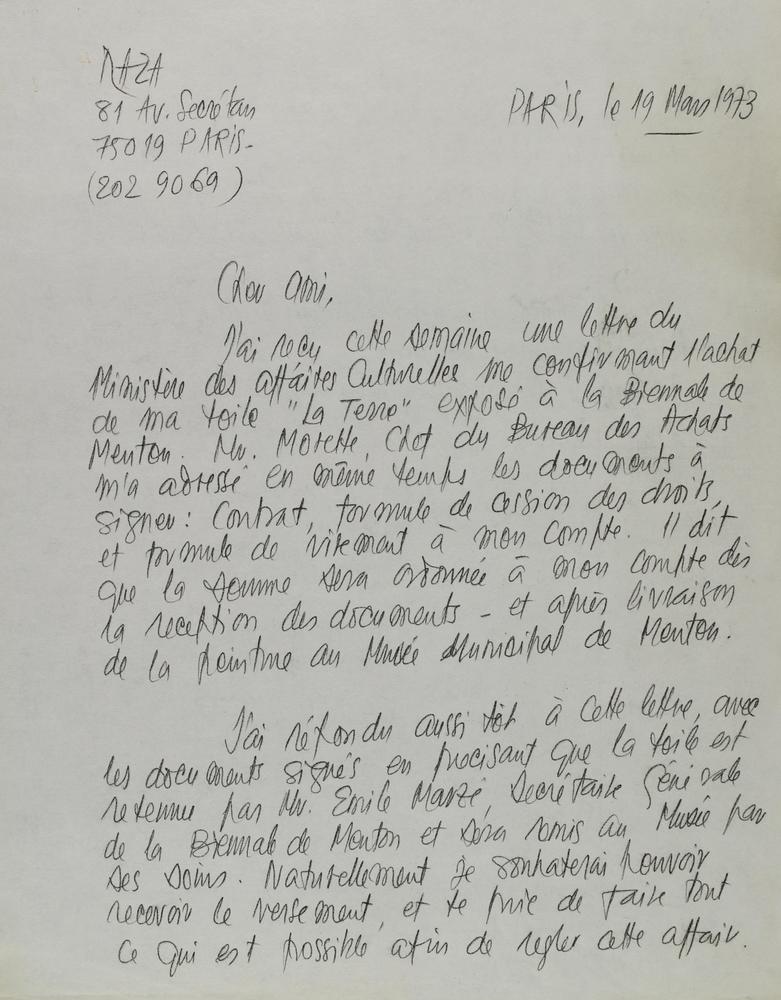 RAZA
81 Av. Secrétan
75019 PARIS-
(202 90 69)
PARIS, le 19 Mars 1973
Cher Ami,
J'ai reçu cette semaine une lettre du
Ministère des affaires Culturelles me confirmant l'achat
de ma toile "La Terre" exposé à la Biennale de
Menton. Mr. Morette, Chef du Bureau des Achats
m'a adressé en même temps les documents à
signer: Contrat, formule de cession des droits,
et formule de virement à mon compte. Il dit
que la somme sera ordonnée à mon compte dès
la reception des documents - et après livraison
de la peinture au Musée Municipal de Menton.
J'ai répondu aussi tôt à cette lettre, avec
les documents signés en precisant que la toile est
retenue par Mr. Emile Marzé, Secrétaire Génerale
de la Biennale de Menton et sera remis au Musée par
ses soins. Naturellement je souhaterai pouvoir
recevoir le versement, et te prie de faire tout
ce qui est possible afin de regler cette affair.